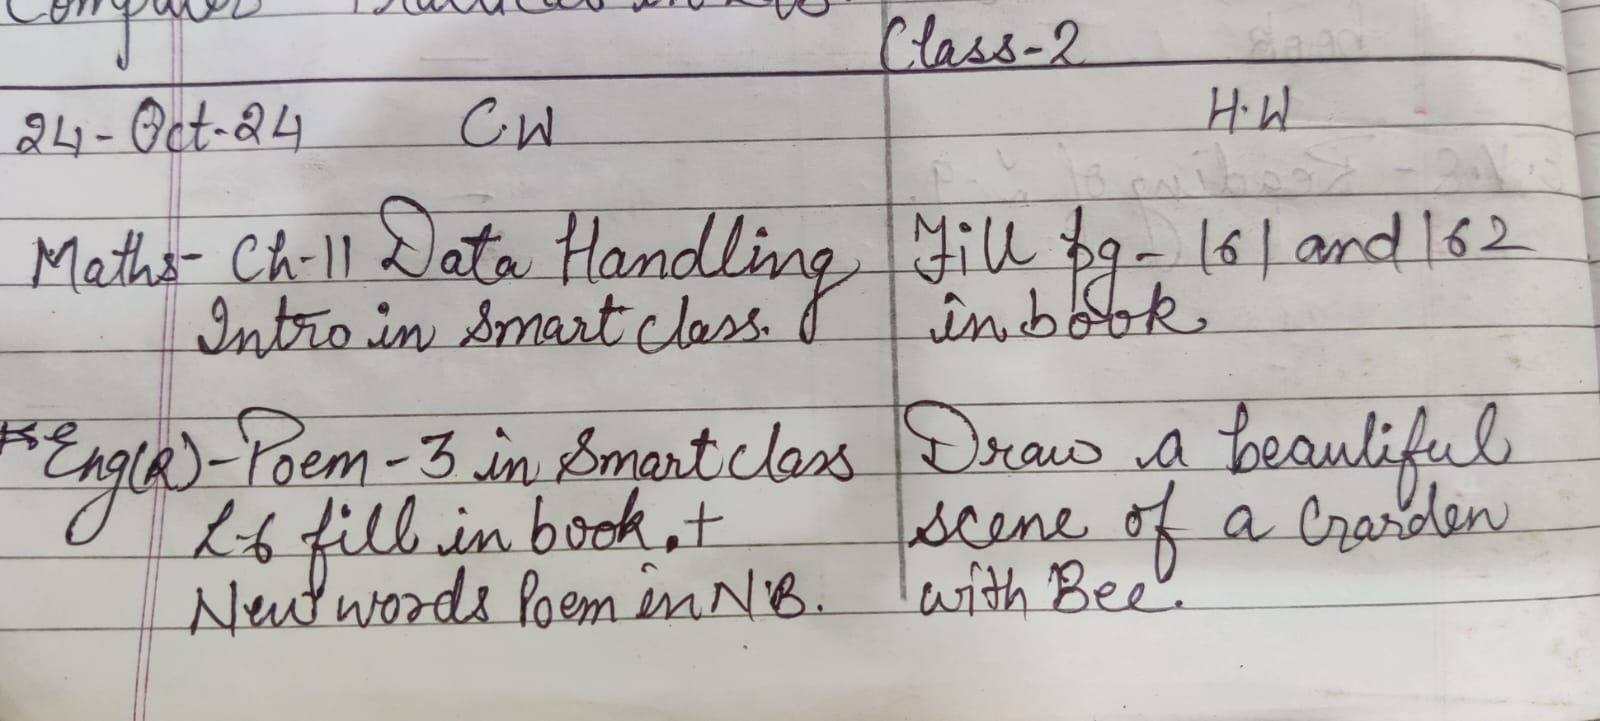 Computer Practical in Lab.
Class-2
24-Oct-24 C.W H.W
Maths- Ch-11 Data Handling Fill pg- 161 and 162
Intro in Smart class. in book.
Eng(R)-Poem-3 in Smart class Draw a beautiful
L-6 fill in book. + scene of a Garden
New words Poem in N.B. with Bee.